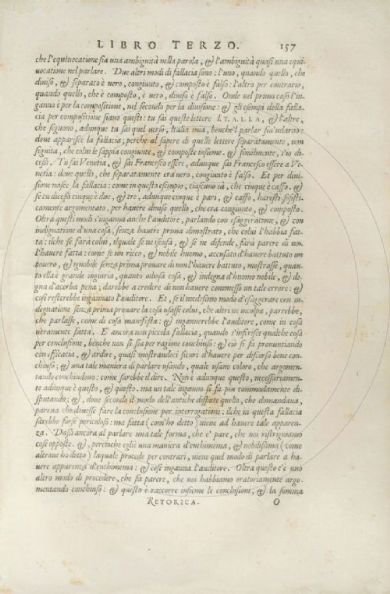 LIBRO TERZO. 157
che l'equivocatione sia una ambiguità nella parola, & l'ambiguità quasi una equi
vocatione nel parlare. Due altri modi di fallacia sono: l'uno, quando quello, che
diviso, & separato è vero, congiunto, & composto è falso: l'altro per contrario,
quando quello, che è composto, è vero, diviso è falso. Onde nel primo caso l'in
ganno è per la compositione, nel secondo per la divisione: & gli esempi della falla
cia per compositione siano questi: tu sai queste lettere I, T, A, L, I, A, & l'altre,
che seguono, adunque tu sai quel verso, Italia mia, benche'l parlar sia indarno:
dove apparisce la fallacia, perche al sapere di quelle lettere separatamente, non
seguita, che colui le sappia congiunte, & composte insieme. & similmente, s'io di
cessi. Tu sai Venetia, & sai Francesco essere, adunque sai Francesco essere a Ve
netia: dove quello, che separatamente era vero, congiunto è falso. Et per divi
sione nasce la fallacia: come in questo esempio, ciascuno sà, che cinque è caffo.
se io dicessi cinque è due, & tre, adunque cinque è pari, & caffo, haresti sofisti-
camente argomentato, per havere diviso quello, che era congiunto, & composto.
Oltra questi modi s'inganna anche l'auditore, parlando con essageratione, & con
indignatione d'una cosa, senza havere prima dimostrato, che colui l'habbia fat-
ta: il che se farà colui, il quale se ne scusa, & se ne difende, farà parere di non
l'havere fatta: come se un ricco, & nobile huomo, accusato d'havere battuto un
povero, & ignobile senza prima provare di non l'havere battuto, mostrasse, quan-
to ella è grande ingiuria, quanto odiosa cosa, & indegna d'huomo nobile, & de-
gna d'acerba pena; darebbe a credere di non havere commesso un tale errore: &
cosi resterebbe ingannato l'auditore. Et, se il medesimo modo d'essagerare con in-
degnatione senza prima provare la cosa usasse colui, che altri ne incolpa, parrebbe,
che parlasse, come di cosa manifesta: & ingannerebbe l'auditore, come in cosa
veramente fatta. E ancora una piccola fallacia, quando s'inferisce qualche cosa
per conclusione, benche non si sia per ragione conchiuso: & ciò si fa pronuntiando
con efficacia, & ardire, quasi mostrandoci sicuri d'havere per discorso bene con-
chiuso: & una tale maniera di parlare usando, quale usano coloro, che argomen-
tando conchiudono: come sarebbe il dire. Non è adunque questo, necessariamen-
te adunque è questo, & questo. ma un tale inganno se fa piu commodamente di-
sputando: &, dove secondo il modo dell'antiche dispute quello, che dimandava,
pareva che divenisse fare la conclusione per interrogatione: il che in questa fallacia
sarebbe forse pericoloso: ma fatta (com'ho detto) viene ad havere tale apparen-
za. Dassi ancora al parlare una tale forma, che e' pare, che noi ristringiamo
cose opposte. &, perciochè egli è una maniera d'enthimema, & nobilissima (come
altrove ho detto) laquale procede per contrari, viene quel modo di parlare a ha-
vere apparenza d'enthimema: & cosi inganna l'auditore. Oltra questo c'è uno
altro modo di procedere, che fa parere, che noi habbiamo oratoriamente argo-
mentando conchiuso: & questo è raccorre insieme le conclusioni, & la somma
RETORICA. O